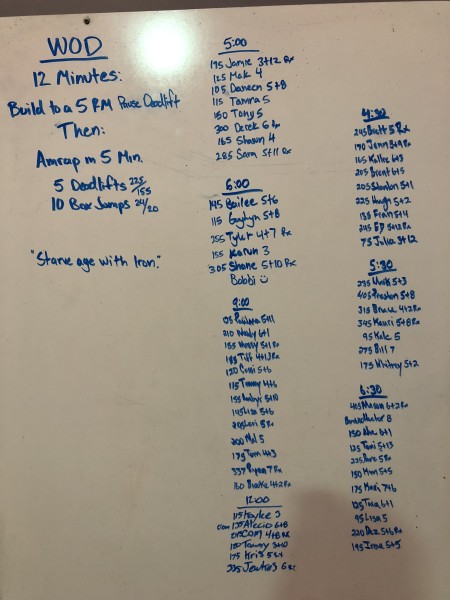 WOD
12 Minutes:
Build to a 5 RM Pause Deadlift
Then:
Amrap in 5 Min.
5 Deadlifts 225/155
10 Box Jumps 24/20
"Starve age with Iron."
5:00
195 Jamie 3+12 Rx
125 Mak 4
105 Daneen 5+8
115 Tamra 5
150 Tony 5
300 Derek 6 Rx
165 Shawn 4
285 Sam 5+11 Rx
6:00
145 Bailee 5+6
115 5+8
255 Tyler 4+7 Rx
155 Karun 3
305 Shane 5+10 Rx
Bobbi
9:00
5+11
210 Mindy 6+1
155 5+1 Rx
185 Tiff 4+13 Rx
120 Comi 5+6
115 Tammy 4+6
155 5+10
145 Lisa 5+6
205 Lori 5 Rx
200 Mel 5
175 Tom 4+3
337 Ryan 7 Rx
160 4+2 Rx
12:00
115 Haylee 5
135 Alecio 6+8
4+8 Rx
150 Tammy 3+10
175 Kris
225 6 Rx
4:30
245 Brett 5 Rx
190 Jenn 3+9 Rx
165 Kallie 6+3
205 Brent 6+5
205 Stanton 5+1
225 Hugh 5+2
135 Fran 5+4
245 ED 5+12 Rx
75 Julia 3+12
5:30
235 Mark 5+3
405 Preston 5+8
315 Bruce 4+2 Rx
345 Kauri 5+8 Rx
95 Kale 5
275 Bill 7
175 Whitney 5+2
6:30
415 Mason 6+2 Rx
8
150 6+1
125 Toni 5+13
225 5 Rx
150 5+5
175 Mari 7+6
125 Tina 6+1
95 Lisa 5
220 Daz 5+6 Rx
195 Irene 5+5